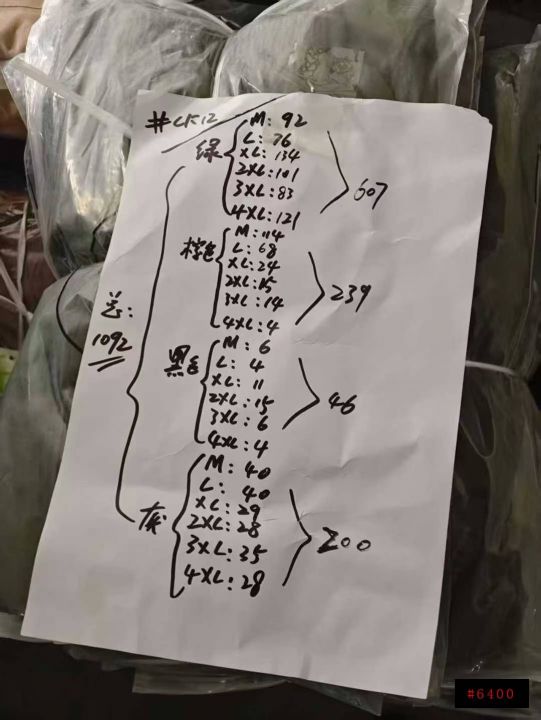 #CK12
绿
M: 92
L: 76
XL: 134
2XL: 101
3XL: 83
4XL: 121
607
棕色
M: 114
L: 68
XL: 24
2XL: 15
3XL: 14
4XL: 4
239
黑色
M: 6
L: 4
XL: 11
2XL: 15
3XL: 6
4XL: 4
46
灰
M: 40
L: 40
XL: 29
2XL: 28
3XL: 35
4XL: 28
200
总:
1092
#6400